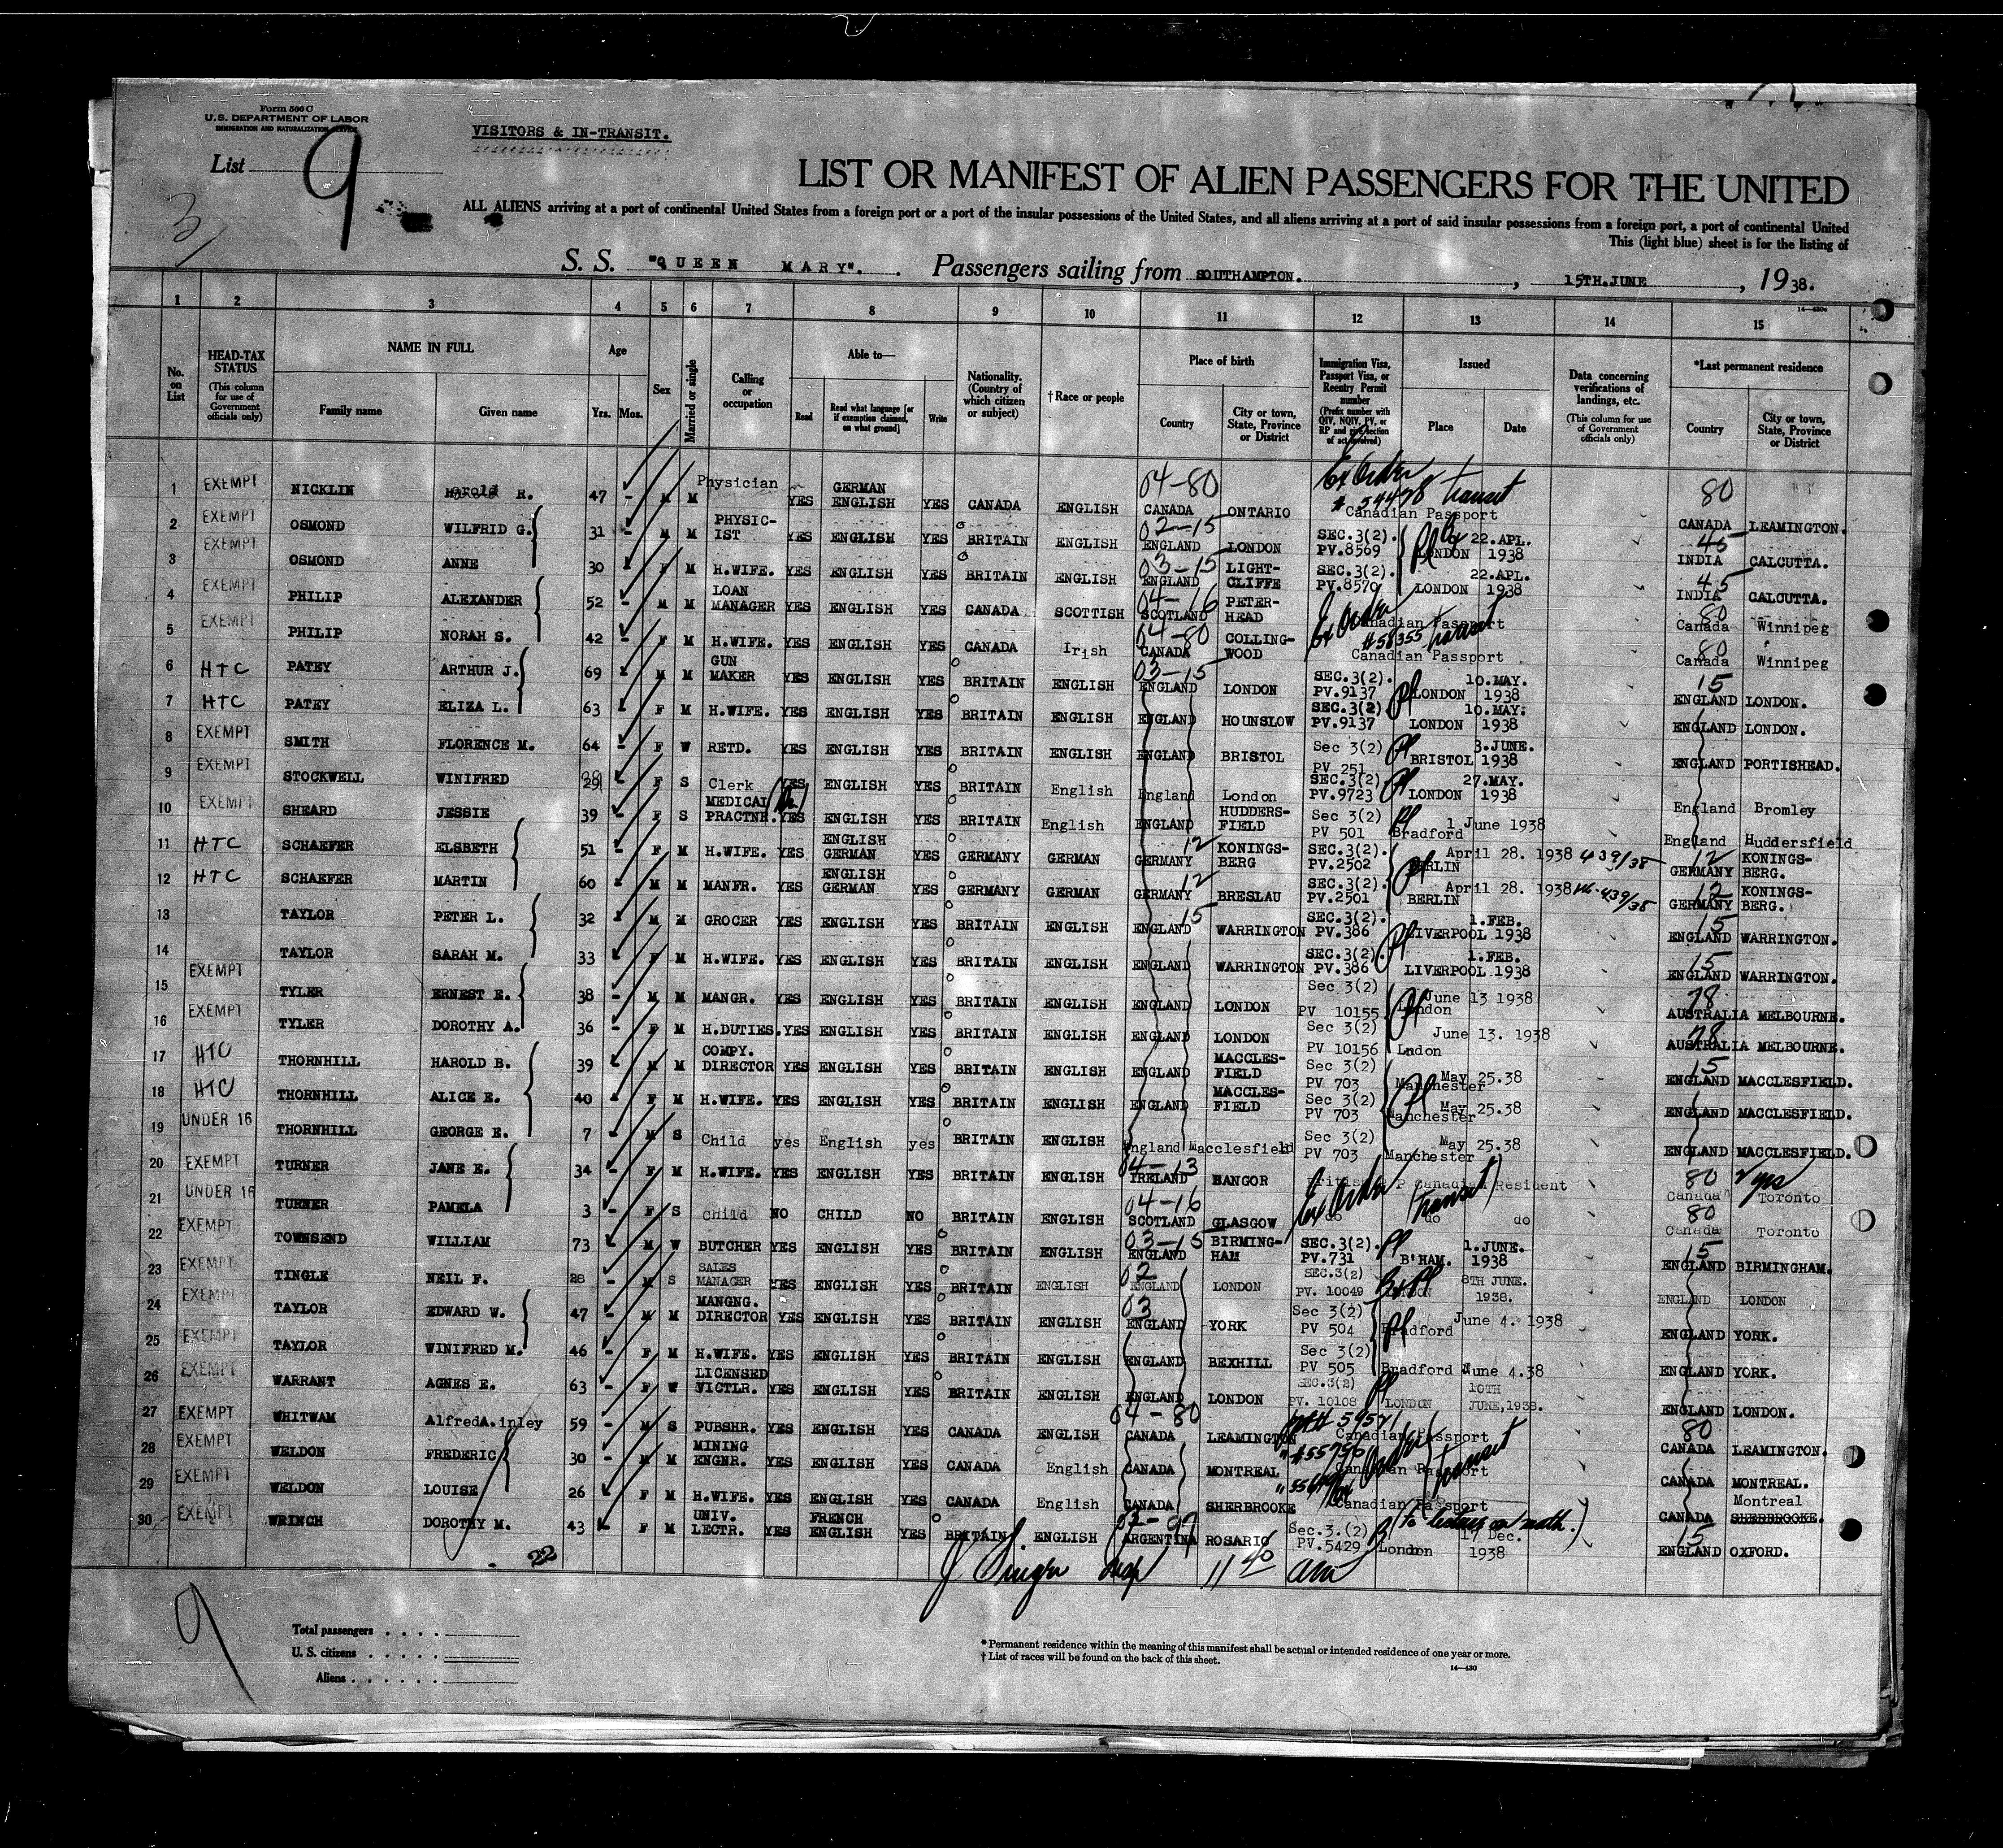 Form 500 C
U.S. DEPARTMENT OF LABOR
IMMIGRATION AND NATURALIZATION SERVICE
VISITORS & IN-TRANSIT.
List 9
31
LIST OR MANIFEST OF ALIEN PASSENGERS FOR THE UNITED
ALL ALIENS arriving at a port of continental United States from a foreign port or a port of the insular possessions of the United States, and all aliens arriving at a port of said insular possessions from a foreign port, a port of continental United
This (light blue) sheet is for the listing of
S. S. "QUEEN MARY". Passengers sailing from SOUTHAMPTON. , 15TH.JUNE , 1938.
1 2 3 4 5 6 7 8 9 10 11 12 13 14 15
No. on List
HEAD-TAX STATUS (This column for use of Government officials only)
NAME IN FULL Family name Given name
Age Yrs. Mos.
Sex
Married or single
Calling or occupation
Able to— Read Read what language [or if exemption claimed, on what ground] Write
Nationality. (Country of which citizen or subject)
†Race or people
Place of birth Country City or town, State, Province or District
Immigration Visa, Passport Visa, or Reentry Permit number (Prefix number with QIV, NQIV, PV, or RP and give section of act involved)
Issued Place Date
Data concerning verifications of landings, etc. (This column for use of Government officials only)
*Last permanent residence Country City or town, State, Province or District
1 EXEMPT NICKLIN Harold R. 47 - M M Physician YES GERMAN ENGLISH YES CANADA ENGLISH 04-80 CANADA ONTARIO Ex Order transit Canadian Passport 80 CANADA LEAMINGTON.
2 EXEMPT OSMOND WILFRID G. 31 - M M PHYSIC-IST YES ENGLISH YES BRITAIN ENGLISH 02-15 ENGLAND LONDON SEC.3(2). PV.8569 LONDON 22.APL. 1938 45 INDIA CALCUTTA.
3 EXEMPT OSMOND ANNE 30 F M H.WIFE. YES ENGLISH YES BRITAIN ENGLISH 03-15 ENGLAND LIGHT-CLIFFE SEC.3(2). PV.8570 LONDON 22.APL. 1938 45 INDIA CALCUTTA.
4 EXEMPT PHILIP ALEXANDER 52 - M M LOAN MANAGER YES ENGLISH YES CANADA SCOTTISH 04-16 SCOTLAND PETER-HEAD Ex Order Canadian Passport 80 Canada Winnipeg
5 EXEMPT PHILIP NORAH S. 42 - F M H.WIFE. YES ENGLISH YES CANADA Irish 04-80 CANADA COLLING-WOOD #58355 transit Canadian Passport 80 Canada Winnipeg
6 HTC PATEY ARTHUR J. 69 M M GUN MAKER YES ENGLISH YES BRITAIN ENGLISH 03-15 ENGLAND LONDON SEC.3(2). PV.9137 LONDON 10.MAY. 1938 15 ENGLAND LONDON.
7 HTC PATEY ELIZA L. 63 F M H.WIFE. YES ENGLISH YES BRITAIN ENGLISH ENGLAND HOUNSLOW SEC.3(2). PV.9137 LONDON 10.MAY. 1938 ENGLAND LONDON.
8 EXEMPT SMITH FLORENCE M. 64 - F W RETD. YES ENGLISH YES BRITAIN ENGLISH ENGLAND BRISTOL Sec 3(2) PV 251 BRISTOL 3.JUNE. 1938 ENGLAND PORTISHEAD.
9 EXEMPT STOCKWELL WINIFRED 29 F S Clerk YES ENGLISH YES BRITAIN English England London SEC.3(2) PV.9723 LONDON 27.MAY. 1938 England Bromley
10 EXEMPT SHEARD JESSIE 39 - F S MEDICAL PRACTNR. YES ENGLISH YES BRITAIN English ENGLAND HUDDERS-FIELD Sec 3(2) PV 501 Bradford 1 June 1938 England Huddersfield
11 HTC SCHAEFER ELSBETH 51 - F M H.WIFE. YES ENGLISH GERMAN YES GERMANY GERMAN 12 GERMANY KONINGS-BERG SEC.3(2). PV.2502 BERLIN April 28. 1938 439/38 12 GERMANY KONINGS-BERG.
12 HTC SCHAEFER MARTIN 60 M M MANFR. YES ENGLISH GERMAN YES GERMANY GERMAN 12 GERMANY BRESLAU SEC.3(2). PV.2501 BERLIN April 28. 1938 439/38 12 GERMANY KONINGS-BERG.
13 TAYLOR PETER L. 32 M M GROCER YES ENGLISH YES BRITAIN ENGLISH 15 ENGLAND WARRINGTON SEC.3(2). PV.386 LIVERPOOL 1.FEB. 1938 15 ENGLAND WARRINGTON.
14 TAYLOR SARAH M. 33 F M H.WIFE. YES ENGLISH YES BRITAIN ENGLISH ENGLAND WARRINGTON SEC.3(2). PV.386 LIVERPOOL 1.FEB. 1938 15 ENGLAND WARRINGTON.
15 EXEMPT TYLER ERNEST E. 38 - M M MANGR. YES ENGLISH YES BRITAIN ENGLISH ENGLAND LONDON Sec 3(2) PV 10155 London June 13 1938 78 AUSTRALIA MELBOURNE.
16 EXEMPT TYLER DOROTHY A. 36 - F M H.DUTIES. YES ENGLISH YES BRITAIN ENGLISH ENGLAND LONDON Sec 3(2) PV 10156 Lndon June 13. 1938 78 AUSTRALIA MELBOURNE.
17 HTC THORNHILL HAROLD B. 39 M M COMPY. DIRECTOR YES ENGLISH YES BRITAIN ENGLISH ENGLAND MACCLES-FIELD Sec 3(2) PV 703 Manchester May 25.38 15 ENGLAND MACCLESFIELD.
18 HTC THORNHILL ALICE E. 40 F M H.WIFE. YES ENGLISH YES BRITAIN ENGLISH ENGLAND MACCLES-FIELD Sec 3(2) PV 703 Manchester May 25.38 ENGLAND MACCLESFIELD.
19 UNDER 16 THORNHILL GEORGE E. 7 M S Child yes English yes BRITAIN ENGLISH England Macclesfield Sec 3(2) PV 703 Manchester May 25.38 ENGLAND MACCLESFIELD.
20 EXEMPT TURNER JANE E. 34 - F M H.WIFE. YES ENGLISH YES BRITAIN ENGLISH 04-13 IRELAND BANGOR British P P Canadian Resident Ex Order (Transit) 80 Canada Toronto
21 UNDER 16 TURNER PAMELA 3 F S Child NO CHILD NO BRITAIN ENGLISH 04-16 SCOTLAND GLASGOW do do do 80 Canada Toronto
22 EXEMPT TOWNSEND WILLIAM 73 M W BUTCHER YES ENGLISH YES BRITAIN ENGLISH 03-15 ENGLAND BIRMING-HAM SEC.3(2). PV.731 B'HAM. 1.JUNE. 1938 15 ENGLAND BIRMINGHAM.
23 EXEMPT TINGLE NEIL F. 28 - M S SALES MANAGER YES ENGLISH YES BRITAIN ENGLISH 02 ENGLAND LONDON SEC.3(2) PV. 10049 LONDON 8TH JUNE. 1938. ENGLAND LONDON
24 EXEMPT TAYLOR EDWARD W. 47 - M M MANGNG. DIRECTOR YES ENGLISH YES BRITAIN ENGLISH 03 ENGLAND YORK Sec 3(2) PV 504 Bradford June 4. 1938 ENGLAND YORK.
25 EXEMPT TAYLOR WINIFRED M. 46 - F M H.WIFE. YES ENGLISH YES BRITAIN ENGLISH ENGLAND BEXHILL Sec 3(2) PV 505 Bradford June 4.38 ENGLAND YORK.
26 EXEMPT WARRANT AGNES E. 63 - F W LICENSED VICTLR. YES ENGLISH YES BRITAIN ENGLISH ENGLAND LONDON SEC.3(2) PV. 10108 LONDON 10TH JUNE,1938. ENGLAND LONDON.
27 EXEMPT WHITWAM AlfredA.inley 59 - M S PUBSHR. YES ENGLISH YES CANADA ENGLISH 04-80 CANADA LEAMINGTON Canadian Passport 80 CANADA LEAMINGTON.
28 EXEMPT WELDON FREDERIC 30 - M M MINING ENGNR. YES ENGLISH YES CANADA English CANADA MONTREAL #55756 Canadian Passport Order Transit CANADA MONTREAL.
29 EXEMPT WELDON LOUISE 26 F M H.WIFE. YES ENGLISH YES CANADA English CANADA SHERBROOKE Canadian Passport CANADA Montreal SHERBROOKE.
30 EXEMPT WRINCH DOROTHY M. 43 F M UNIV. LECTR. YES FRENCH ENGLISH YES BRITAIN ENGLISH 02-97 ARGENTINA ROSARIO Sec.3.(2) PV.5429 London 17 Dec. 1938 (to lecture on math.) 15 ENGLAND OXFORD.
22
J Singer 11 40 am
9
Total passengers
U. S. citizens
Aliens
* Permanent residence within the meaning of this manifest shall be actual or intended residence of one year or more.
† List of races will be found on the back of this sheet.
14—430